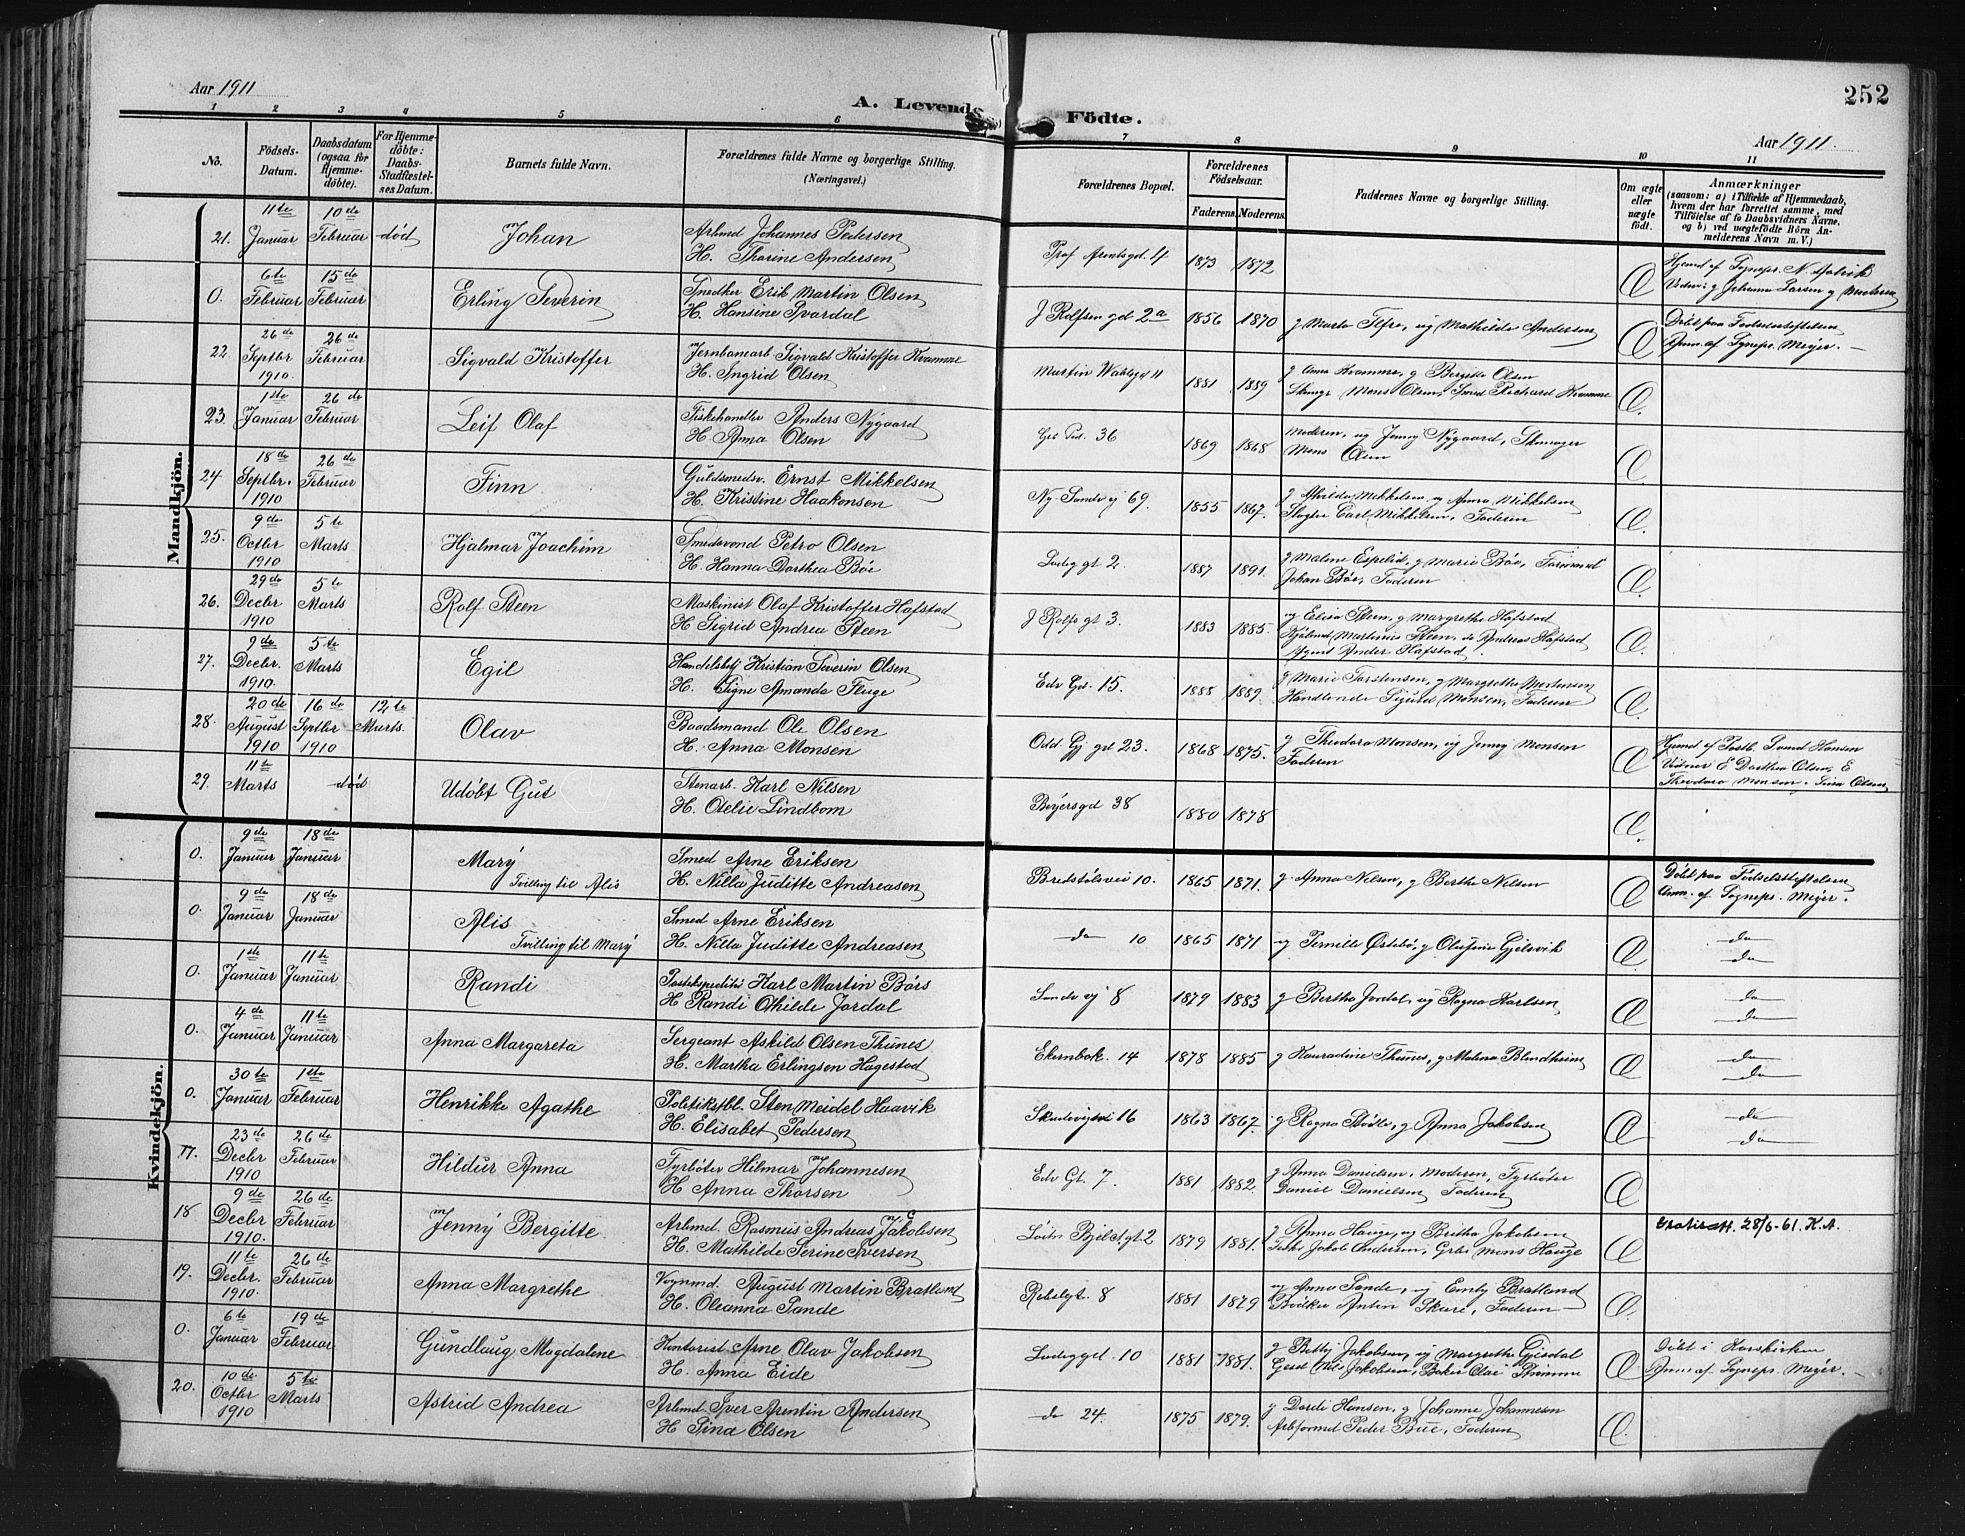 252
Aar 1911
A. Levende Födte.
Aar 1911.
1 2 3 4 5 6 7 8 9 10 11
No.
Födsels-Datum.
Daabsdatum (ogsaa for Hjemme-döbte).
For Hjemme-döbte: Daabs-Stadfæstel-ses Datum.
Barnets fulde Navn.
Forældrenes fulde Navne og borgerlige Stilling. (Næringsvei.)
Forældrenes Bopæl.
Forældrenes Födselsaar.
Faderens. Moderens.
Faddernes Navne og borgerlige Stilling.
Om ægte eller uægte födt.
Anmærkninger
(saasom: a) i Tilfælde af Hjemmedaab, hvem der har forrettet samme, med Tilföielse af to Daabsvidners Navne, og b) ved uægtefödte Börn An-melderens Navn m. V.)
Mandkjön.
21. 11te Januar 10de Februar död Johan Arbmd Johannes Pedersen
H. Thorine Andersen 4 1873 1872 Æ
0. 6te Februar 15de Februar Erling Severin Snedker Erik Martin Olsen
H. Hansine Svardal J Rolfsen gd 2a 1856 1870 Mathilde Andersen Æ Döbt paa Födselsstiftelsen
Anm. af Sogneps. Meyer. —
22 26de Septbr 1910. 26de Februar Sigvald Kristoffer Jernbanearb Sigvald Kristoffer Kvamme
H. Ingrid Olsen Martin Wahlsgd 11 1881 1889 g Anna Kvamme, g Bergitte Olsen
Mons Olsen, Smed Richard Kvamme Æ
23. 1ste Januar 26de Februar Leif Olaf Fiskehandler Anders Nygaard
H. Anna Olsen 36 1869 1868 Moderen, ug Jenny Nygaard, Skomager
Mons Olsen Æ
24. 18de Septbr. 1910 26de Februar Finn Guldsmedsv. Ernst Mikkelsen
H. Kristine Haakensen Ny Sandv vg 69. 1855 1867. Mikkelsen, ug Anna Mikkelsen
Slagter Carl Mikkelsen, Faderen Æ
25. 9de Octbr 1910 5te Marts Hjalmar Joachim Smedsvend Petro Olsen
H. Hanna Dorthea Böe Ladeg gt 2. 1887 1891. g Malene Espelid, g Marie Böe,
Johan Böe, Faderen Æ
26. 29de Decbr 1910 5te Marts Rolf Steen Maskinist Olaf Kristoffer Hafstad
H Sigrid Andrea Steen J Rolfs gt 3. 1883 1885. ug Elisa Steen, g Margrethe Hafstad
Martinus Steen, do Andreas Hafstad
Agent Ander Hafstad. Æ
27. 9de Decbr. 1910. 5te Marts Egil Handelsbetj Kristian Severin Olsen
H. Signe Amanda Fluge Edv Gt. 15. 1888 1889. g Marie Torstensen, g Margrethe Mortensen
Handlende Sigurd Monsen, Faderen Æ
28. 20de August 1910 16de Septbr 1910 12te Marts. Olav Baadsmand Ole Olsen
H. Anna Monsen Odd Gj gd 23. 1868 1875. g Theodora Monsen, ug Jenny Monsen
Faderen Æ Hjemd af Hansen
Vidner E Dorthea Olsen, E
Theodora Monsen, Olsen
29. 11te Marts död Udöbt Gut Stenarb. Karl Nilsen
H. Otelie Lindbom Beyersgd 38 1880 1878 Æ
Kvindekjön.
0. 9de Januar 18de Januar Mary
Tvilling til Alis Smed Arne Eriksen
H. Nilla Juditte Andreasen Bredstölsvei 10. 1865 1871. g Anna Nilsen, g Berthe Nilsen Æ Döbt paa Födselsstiftelsen
Anm. af Sogneps. Meyer.
0. 9de Januar 18de Januar Alis
Tvilling til Mary Smed Arne Eriksen
H. Nilla Juditte Andreasen do 10 1865 1871 ug Pernille Östebö, g Olufine Gjelsvik Æ do
do
0. 1ste Januar 11te Januar Randi Postekspeditör Karl Martin Börs
H Randi Othilde Jordal Sandv vj 8 1879 1883 g Bertha Jordal, ug Ragna Karlsen Æ do
do
0. 4de Januar 11te Januar Anna Margareta Sergeant Askild Olsen Thunes
H. Martha Erlingsen Hagestad Ekernbak. 14 1878 1885 g Konradine Thunes, g Malena Blindheim Æ do
do
0. 30te Januar 1ste Februar Henrikke Agathe Politikstbl. Sten Meidel Haavik
H. Elisabet Pedersen Skudeviksvei 16 1863 1867. g Ragna g Anna Jakobsen Æ do
do
17. 23de Decbr 1910 26de Februar Hildur Anna Fyrböter Hilmar Johannesen
H Anna Thorsen Edv Gt. 7 1881 1882. g Anna Danielsen, Moderen, Fyrböter
Daniel Danielsen, Faderen Æ
18 9de Decbr 1910. 26de Februar Jenny Bergitte Arbmd. Rasmus Andreas Jakobsen
H. Mathilde Serine Iversen 2 1879 1881. g Anna Hauge, ug Britha Jakobsen
Jakob Andersen, Mons Hauge Æ Gratisatt. 28/6-61. K.A.
19. 11te Decbr. 1910. 26de Februar Anna Margrethe Vognmd. August Martin Bratlund
H. Oleanna Sande 8 1881 1879 ug Anna Sande, ug Emly Bratland
Bödker Antin Skare, Faderen Æ
0. 6te Januar 19de Februar Gundlaug Magdalene Kontorist Arne Olav Jakobsen
H. Anna Eide Ladeg gd. 10 1881 1881. g Betty Jakobsen, ug Margrethe Gjesdal
Jakobsen, Baker Olai Æ Döbt i Korskirken
Anm af Sogneps. Meyer. —
20. 10de Octbr 1910 5te Marts Astrid Andrea Arbmd Iver Arentin Andersen
H Sina Olsen do 24. 1875 1879. g Dorde Hansen, g Johanne Johannesen
Arbformd Peder Bue, Faderen Æ